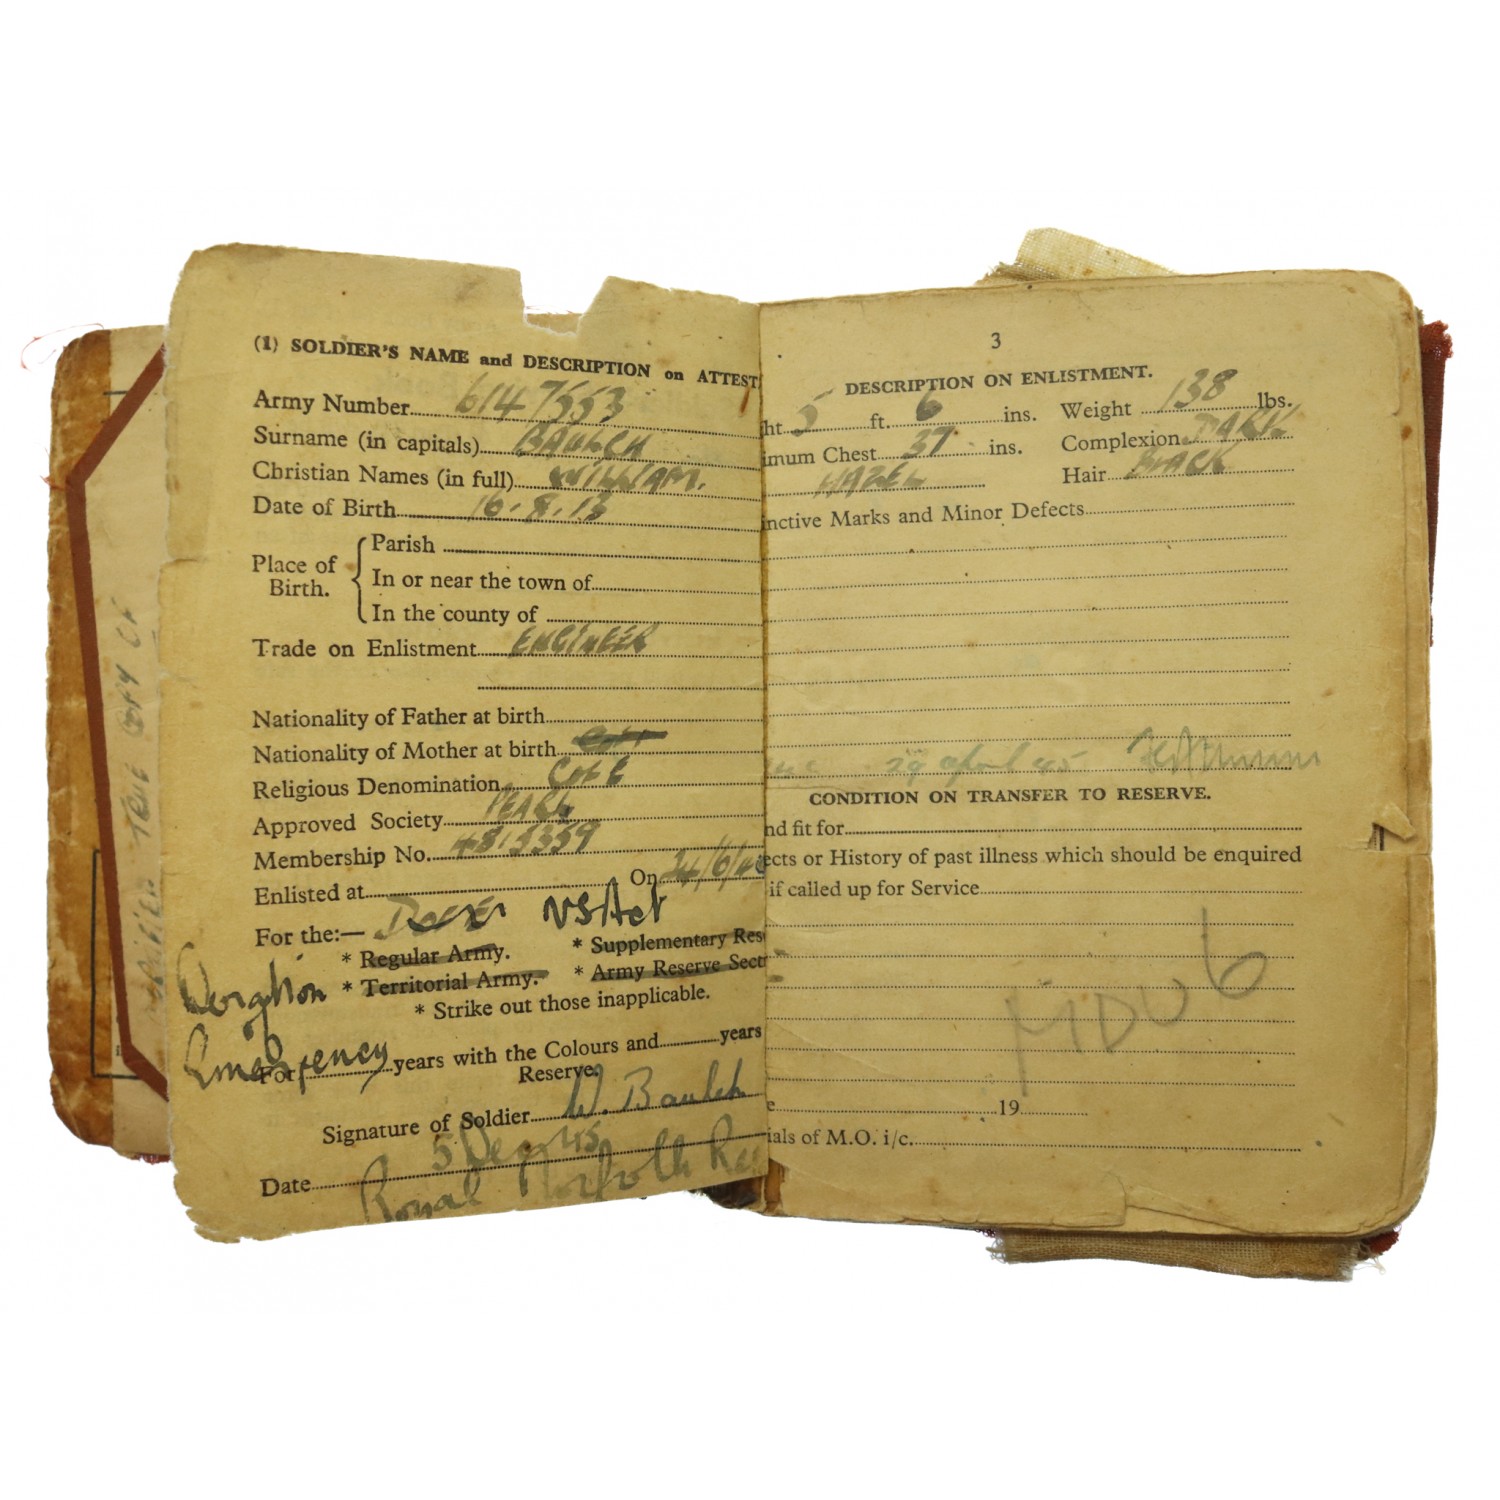 (1) SOLDIER'S NAME and DESCRIPTION on ATTEST
Army Number 6147553
Surname (in capitals) BAULCH
Christian Names (in full) WILLIAM.
Date of Birth 16.8.13
Place of Birth.
Parish
In or near the town of
In the county of
Trade on Enlistment ENGINEER
Nationality of Father at birth
Nationality of Mother at birth
Religious Denomination C of E
Approved Society PEARL
Membership No. 4813359
Enlisted at On 24/6/40
For the:— NS Act
* Regular Army. * Supplementary Res
* Territorial Army. * Army Reserve Sect
* Strike out those inapplicable.
Duration
Emergency
For years with the Colours and years
Reserve.
Signature of Soldier W. Baulch
5 Dec 45
Date
Royal Norfolk Reg
3
DESCRIPTION ON ENLISTMENT.
ht 5 ft. 6 ins. Weight 138 lbs.
imum Chest 37 ins. Complexion DARK
HAZEL Hair BLACK
nctive Marks and Minor Defects
29 April 45
CONDITION ON TRANSFER TO RESERVE.
nd fit for
ects or History of past illness which should be enquired
if called up for Service
MDU 6
e 19
ials of M.O. i/c.
TRUE COPY OF